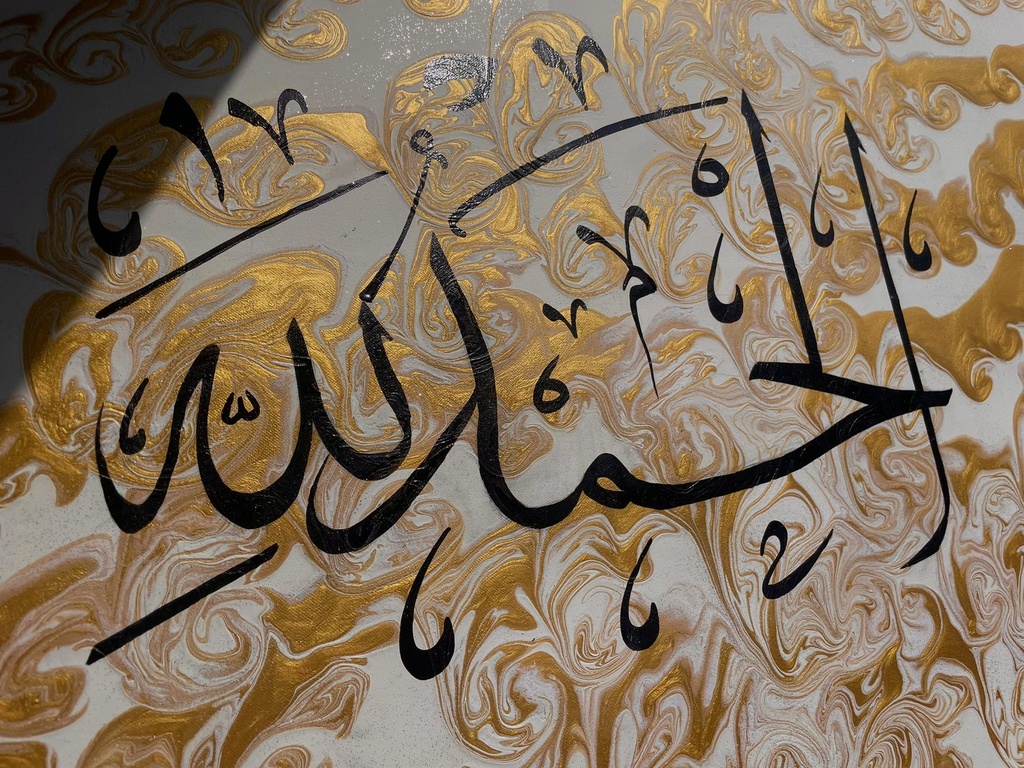 الْحَمْدُ لِلَّهِ